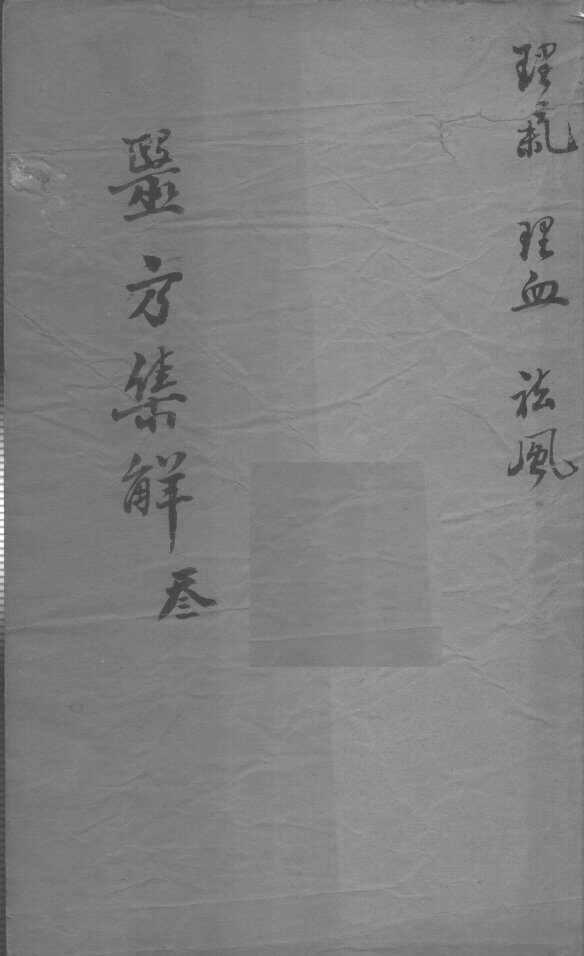 理氣 理血 祛風
毉方集解 叁